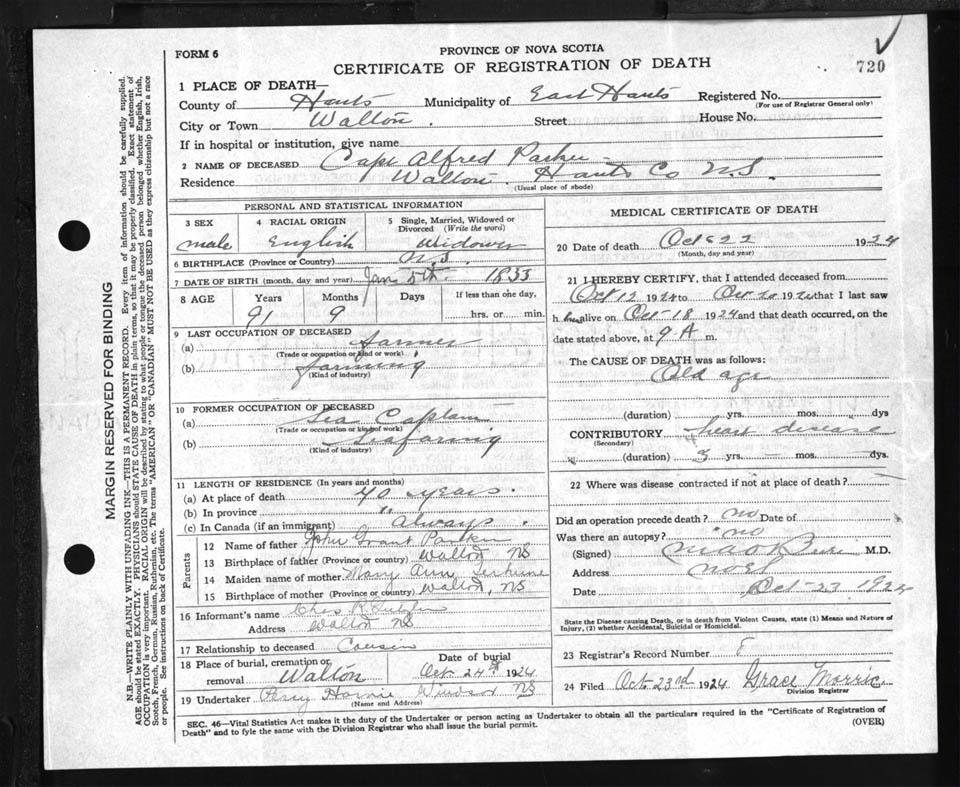 FORM 6
PROVINCE OF NOVA SCOTIA
CERTIFICATE OF REGISTRATION OF DEATH
720
1 PLACE OF DEATH—
County of Hants Municipality of East Hants Registered No.
(For use of Registrar General only)
City or Town Walton. Street House No.
If in hospital or institution, give name
2 NAME OF DECEASED Capt Alfred Parker
Residence Walton. Hants Co N.S.
(Usual place of abode)
PERSONAL AND STATISTICAL INFORMATION
3 SEX 4 RACIAL ORIGIN 5 Single, Married, Widowed or Divorced (Write the word)
male English Widower
6 BIRTHPLACE (Province or Country) N.S.
7 DATE OF BIRTH (month, day and year) Jan 5th 1833
8 AGE Years Months Days If less than one day,
91 9 hrs. or min.
9 LAST OCCUPATION OF DECEASED
(a) farmer
(Trade or occupation or kind or work)
(b) farming
(Kind of industry)
10 FORMER OCCUPATION OF DECEASED
(a) Sea Captain
(Trade or occupation or kind of work)
(b) Seafaring
(Kind of industry)
11 LENGTH OF RESIDENCE (In years and months)
(a) At place of death 40 years.
(b) In province "
(c) In Canada (if an immigrant) Always.
Parents
12 Name of father John Grant Parker
13 Birthplace of father (Province or country) Walton NS
14 Maiden name of mother Mary Ann
15 Birthplace of mother (Province or country) Walton, NS
16 Informant's name Chas R.
Address Walton NS
17 Relationship to deceased Cousin
18 Place of burial, cremation or removal Walton
Date of burial Oct 24th 1924
19 Undertaker Percy Windsor NS
(Name and Address)
MEDICAL CERTIFICATE OF DEATH
20 Date of death Oct 22 1924
(Month, day and year)
21 I HEREBY CERTIFY, that I attended deceased from
Oct 12 1924 to Oct 20 1924 that I last saw
h im alive on Oct 18 1924 and that death occurred, on the
date stated above, at 9 A m.
The CAUSE OF DEATH was as follows:
Old age
(duration) yrs. mos. dys
CONTRIBUTORY heart disease
(Secondary)
(duration) 3 yrs. — mos. dys.
22 Where was disease contracted if not at place of death?
Did an operation precede death? no Date of
Was there an autopsy? "no
(Signed) M.D.
Address Noel
Date Oct-23 1924
State the Disease causing Death, or in death from Violent Causes, state (1) Means and Nature of
Injury, (2) whether Accidental, Suicidal or Homicidal.
23 Registrar's Record Number 8
24 Filed Oct. 23rd 1924 Grace
Division Registrar
SEC. 46—Vital Statistics Act makes it the duty of the Undertaker or person acting as Undertaker to obtain all the particulars required in the "Certificate of Registration of
Death" and to fyle the same with the Division Registrar who shall issue the burial permit. (OVER)
MARGIN RESERVED FOR BINDING
N.B.—WRITE PLAINLY WITH UNFADING INK—THIS IS A PERMANENT RECORD. Every item of information should be carefully supplied.
AGE should be stated EXACTLY. PHYSICIANS should STATE CAUSE OF DEATH in plain terms, so that it may be properly classified. Exact statement of
OCCUPATION is very important. RACIAL ORIGIN will be described by stating to what people or tongue the deceased person belonged whether English, Irish,
Scotch, French, German, Russian, Ruthenian, etc. The terms "AMERICAN" or "CANADIAN" MUST NOT BE USED as they express citizenship but not a race
or people. See instructions on back of Certificate.